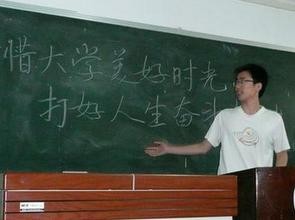 惜大学美好时光
打好人生奋斗